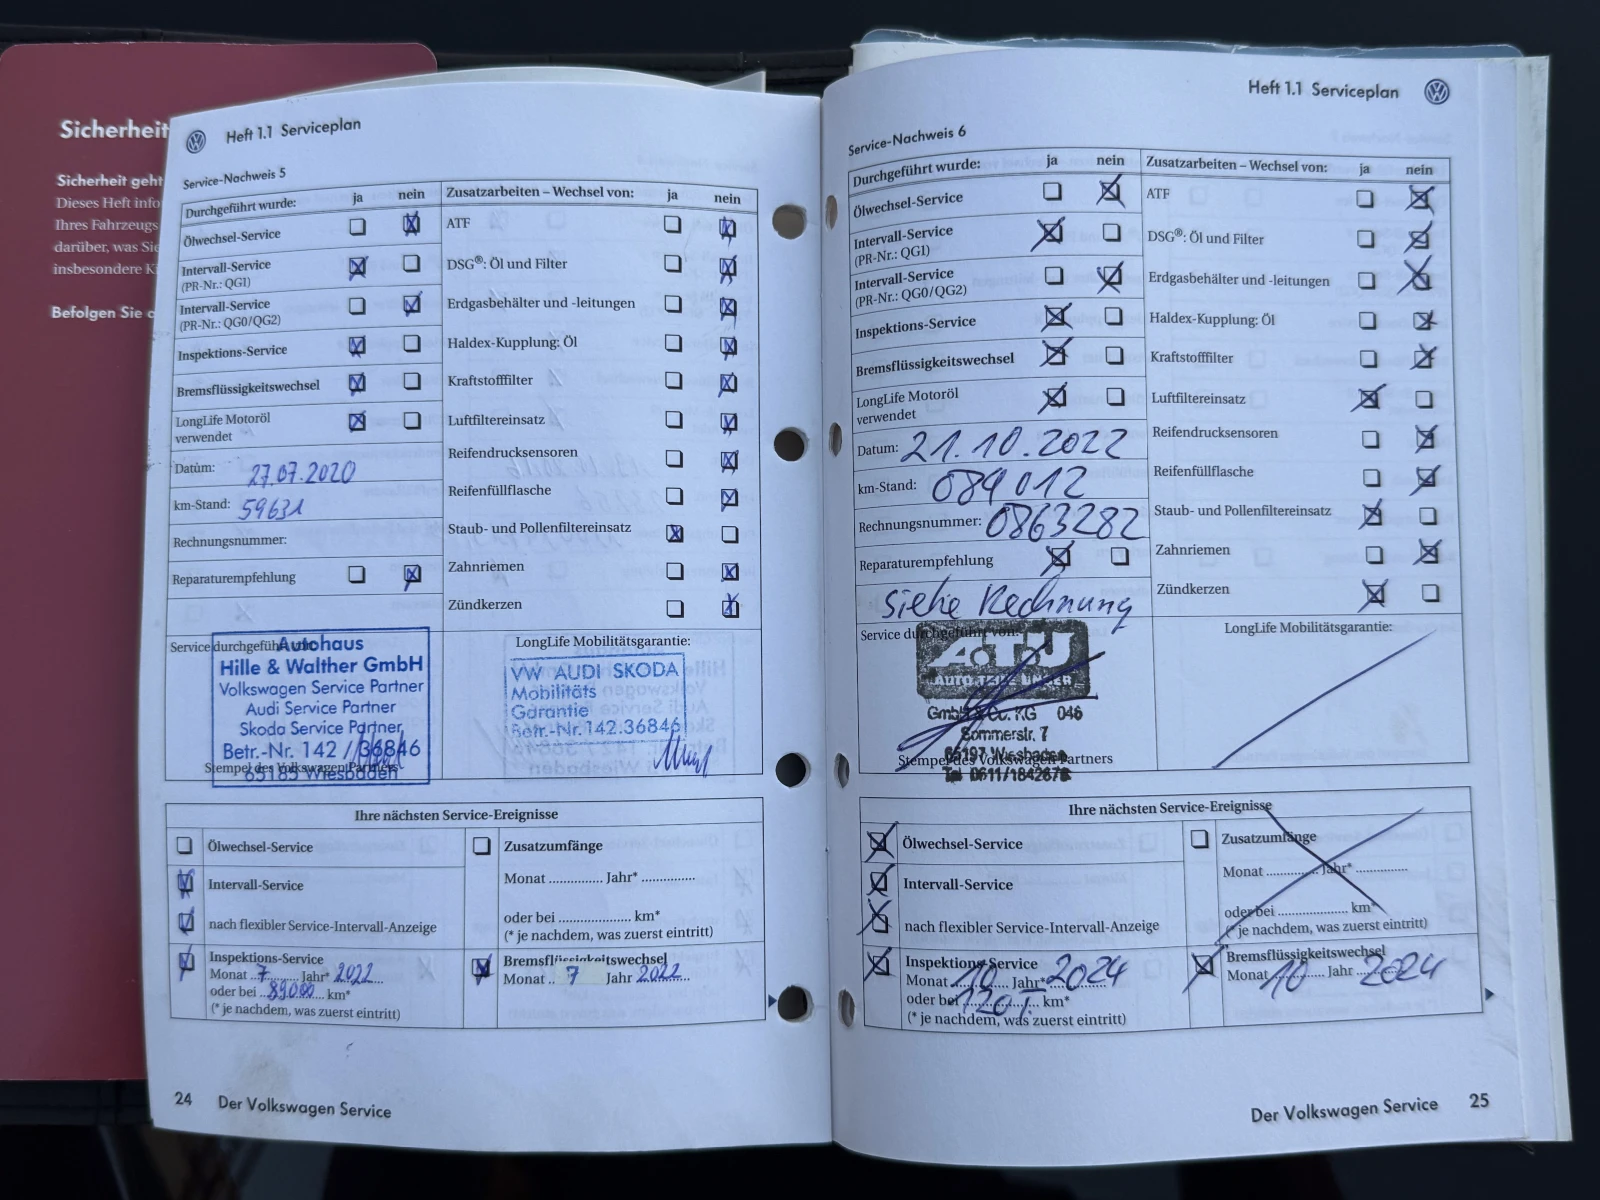 Sicherheit
Sicherheit geht
Dieses Heft info
Ihres Fahrzeugs
darüber, was Sie
insbesondere Ki
Befolgen Sie d
Heft 1.1 Serviceplan
Service-Nachweis 5
Durchgeführt wurde: ja nein
Ölwechsel-Service
Intervall-Service
(PR-Nr.: QG1)
Intervall-Service
(PR-Nr.: QG0/QG2)
Inspektions-Service
Bremsflüssigkeitswechsel
LongLife Motoröl
verwendet
Datum: 27.07.2020
km-Stand: 59631
Rechnungsnummer:
Reparaturempfehlung
Zusatzarbeiten – Wechsel von: ja nein
ATF
DSG®: Öl und Filter
Erdgasbehälter und -leitungen
Haldex-Kupplung: Öl
Kraftstofffilter
Luftfiltereinsatz
Reifendrucksensoren
Reifenfüllflasche
Staub- und Pollenfiltereinsatz
Zahnriemen
Zündkerzen
Service durchgeführt
Autohaus
Hille & Walther GmbH
Volkswagen Service Partner
Audi Service Partner
Skoda Service Partner
Betr.-Nr. 142 / 36846
65185 Wiesbaden
Stempel des Volkswagen Partners
LongLife Mobilitätsgarantie:
VW AUDI SKODA
Mobilitäts
Garantie
Betr.-Nr. 142.36846
Ihre nächsten Service-Ereignisse
Ölwechsel-Service
Intervall-Service
nach flexibler Service-Intervall-Anzeige
Inspektions-Service
Monat 7 Jahr* 2022
oder bei 89000 km*
(* je nachdem, was zuerst eintritt)
Zusatzumfänge
Monat ............. Jahr* .............
oder bei .................... km*
(* je nachdem, was zuerst eintritt)
Bremsflüssigkeitswechsel
Monat .. 7 Jahr 2022
24 Der Volkswagen Service
Heft 1.1 Serviceplan
Service-Nachweis 6
Durchgeführt wurde: ja nein
Ölwechsel-Service
Intervall-Service
(PR-Nr.: QG1)
Intervall-Service
(PR-Nr.: QG0/QG2)
Inspektions-Service
Bremsflüssigkeitswechsel
LongLife Motoröl
verwendet
Datum: 21.10.2022
km-Stand: 089012
Rechnungsnummer: 0863282
Reparaturempfehlung
siehe Rechnung
Zusatzarbeiten – Wechsel von: ja nein
ATF
DSG®: Öl und Filter
Erdgasbehälter und -leitungen
Haldex-Kupplung: Öl
Kraftstofffilter
Luftfiltereinsatz
Reifendrucksensoren
Reifenfüllflasche
Staub- und Pollenfiltereinsatz
Zahnriemen
Zündkerzen
Service durchgeführt von:
A.T.U
AUTO TEILE UNGER
GmbH & Co. KG 046
Sommerstr. 7
65197 Wiesbaden
Stempel des Volkswagen Partners
Tel. 0611/1842878
LongLife Mobilitätsgarantie:
Ihre nächsten Service-Ereignisse
Ölwechsel-Service
Intervall-Service
nach flexibler Service-Intervall-Anzeige
Inspektions-Service
Monat 10 Jahr* 2024
oder bei 120 T. km*
(* je nachdem, was zuerst eintritt)
Zusatzumfänge
Monat ............. Jahr* .............
oder bei .................... km*
(* je nachdem, was zuerst eintritt)
Bremsflüssigkeitswechsel
Monat 10 Jahr 2024
Der Volkswagen Service 25